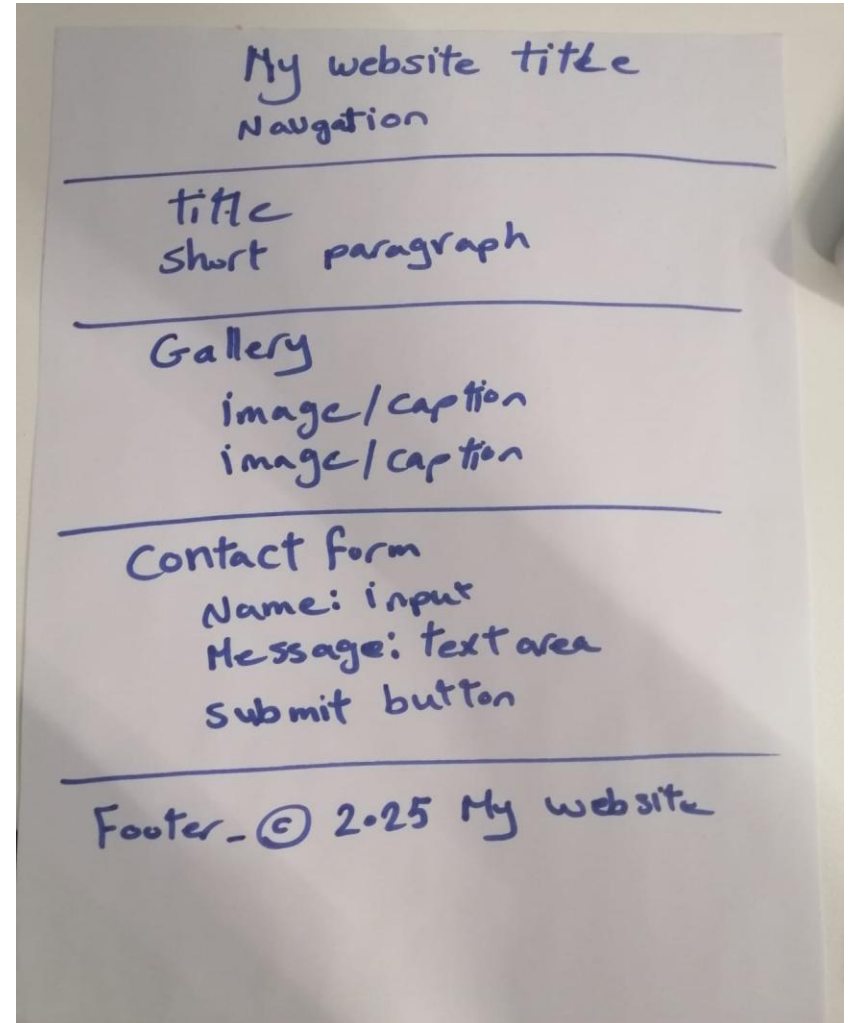 My website title
Navgation
title
short paragraph
Gallery
image/caption
image/caption
Contact form
Name: input
Message: text area
submit button
Footer - © 2025 My website